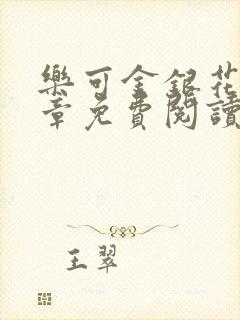 樂可金銀花
章免費閱讀
王翠